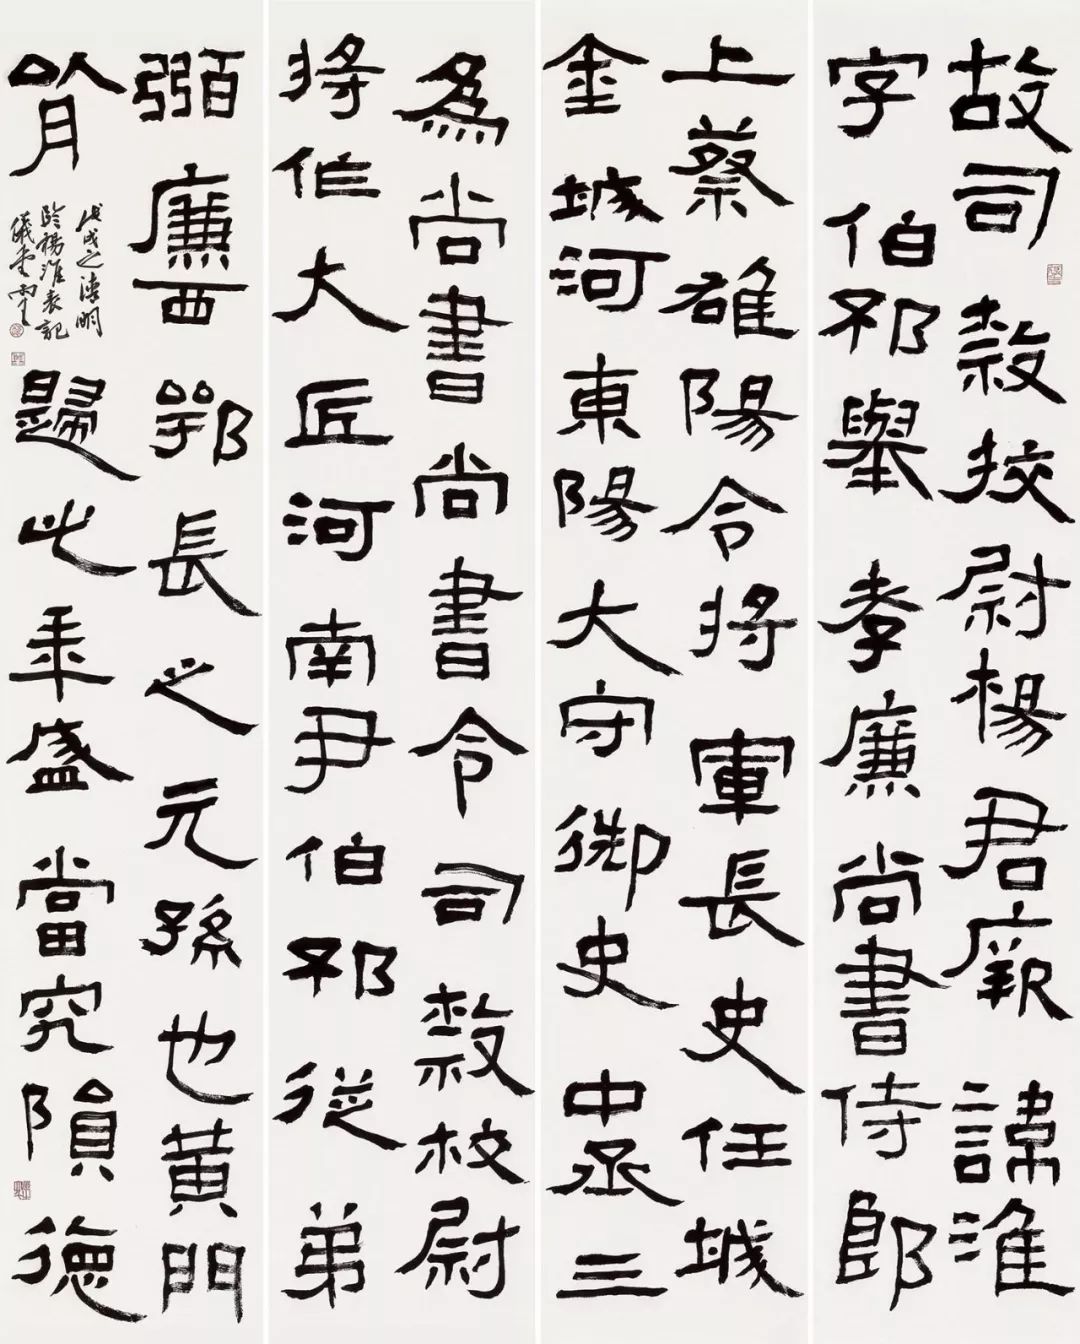 故司隸挍尉楊君厥諱淮
字伯邳舉孝廉尚書侍郎
上蔡雒陽令將軍長史任城
金城河東陽大守御史中丞三
為尚書尚書令司隸校尉
將作大匠河南尹伯邳從弟
弼廉西鄂長之元孫也黃門
歸此年盛當究隕德
戊戌之清明
臨楊淮表記
儀堂